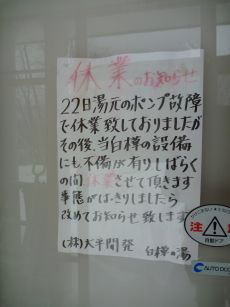 休業のお知らせ
22日湯元のポンプ故障
で休業致しておりましたが
その後、当白樺の設備
にも不備が有りしばらく
の間休業させて頂きます
事態がはっきりしましたら
改めてお知らせ致します
(株)大平開発 白樺の湯
注
自動ドア
AUTO DOO